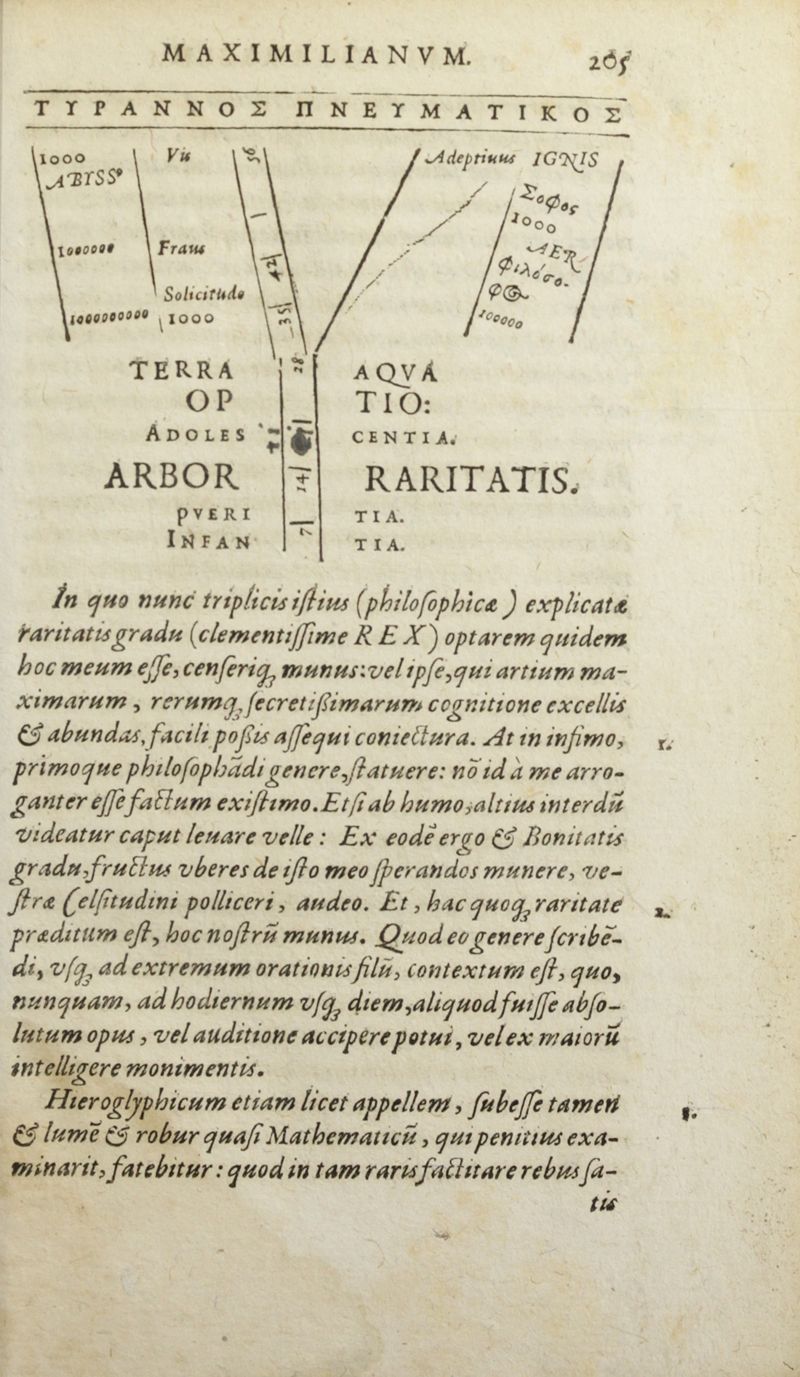 MAXIMILIANVM. 205
ΤΥΡΑΝΝΟΣ ΠΝΕΥΜΑΤΙΚΟΣ
1000 Vis Adeptiuus IGNIS
ABYSSꝰ Σοφος
1000
1000000 Fraus AER
Φιλόσο-
Solicitudo φος
1000000000 1000 100000
TERRA AQVA
OP TIO:
ADOLES CENTIA.
ARBOR RARITATIS.
PVERI TIA.
INFAN TIA.
In quo nunc triplicis iſtius (philoſophicæ ) explicatæ
raritatis gradu (clementiſſime REX) optarem quidem
hoc meum eſſe, cenſeriq; munus: vel ipſe, qui artium ma-
ximarum , rerumq; ſecretißimarum cognitione excellis
& abundas, facili poßis aſſequi coniectura. At in infimo, 1.
primoque philoſophādi genere, ſtatuere: nō id à me arro-
ganter eſſe factum exiſtimo. Etſi ab humo, altius interdū
videatur caput leuare velle : Ex eodē ergo & Bonitatis
gradu, fructus vberes de iſto meo ſperandos munere, ve-
ſtræ Celſitudini polliceri , audeo. Et , hac quoq; raritate 2.
præditum eſt, hoc noſtrū munus. Quod eo genere ſcribē-
di, vſq; ad extremum orationis filū, contextum eſt, quo,
nunquam, ad hodiernum vſq; diem, aliquod fuiſſe abſo-
lutum opus , vel auditione accipere potui, vel ex maiorū
intelligere monimentis.
Hieroglyphicum etiam licet appellem , ſubeſſe tamen 3.
& lumē & robur quaſi Mathematicū , qui penitius exa-
minarit, fatebitur : quod in tam raris factitare rebus ſa-
tis